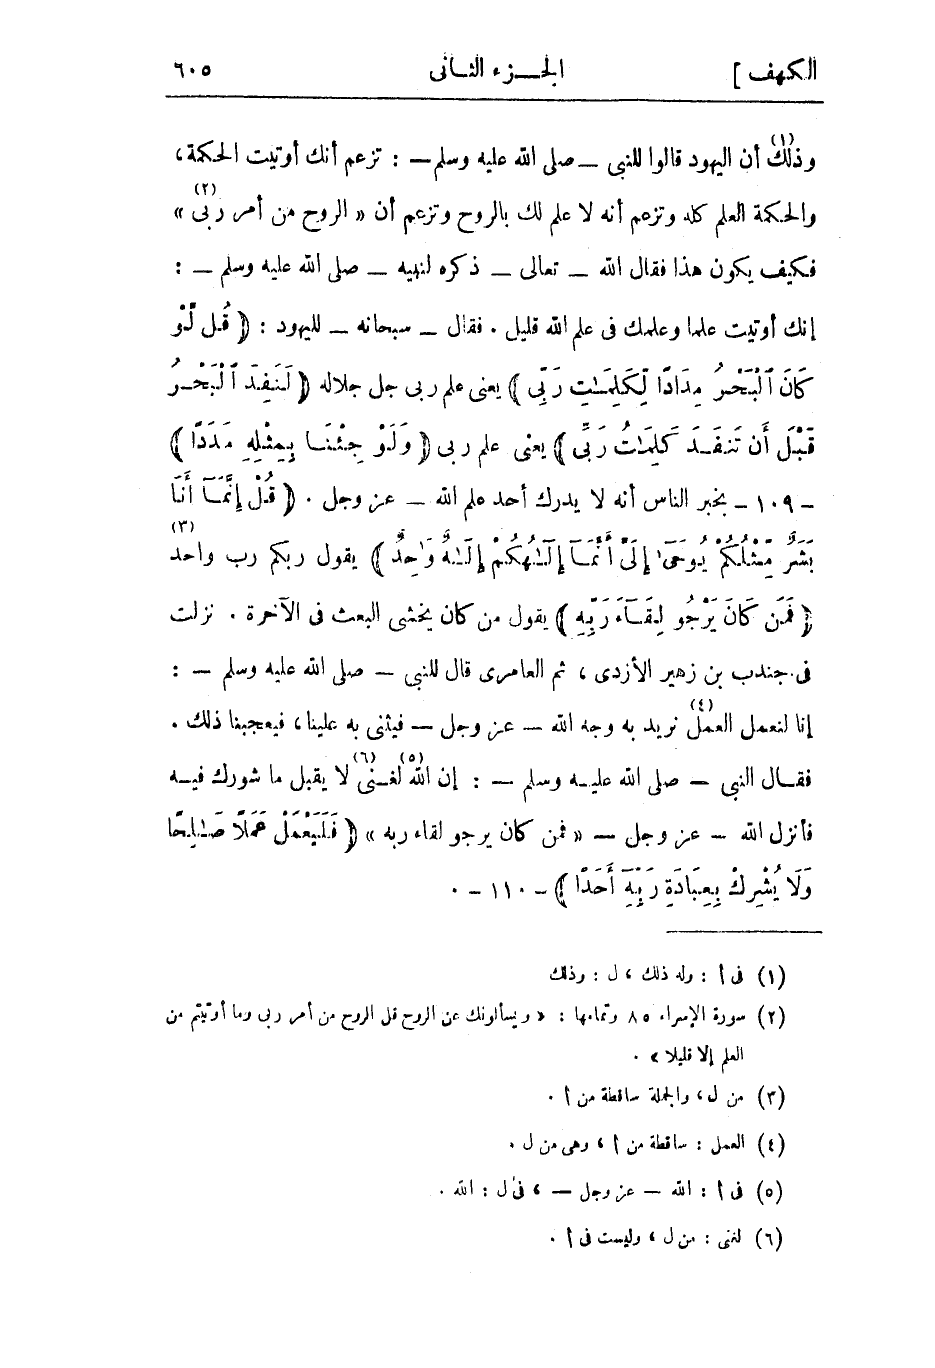 الكهف ] الجـزء الثـانى ٦٠٥
وذلك(١) أن اليهود قالوا للنبى — صلى الله عليه وسلم— : تزعم أنك أوتيت الحكمة،
والحكمة العلم كله وتزعم أنه لا علم لك بالروح وتزعم أن « الروح من أمر ربى(٢) »
فكيف يكون هذا فقال الله — تعالى — ذكره لنبيه — صلى الله عليه وسلم — :
إنك أوتيت علما وعلمك فى علم الله قليل . فقال — سبحانه — لليهود : ﴿ قُل لَّوْ
كَانَ ٱلْبَحْرُ مِدَادًا لِّكَلِمَـٰتِ رَبِّى ﴾ يعنى علم ربى جل جلاله ﴿ لَنَفِدَ ٱلْبَحْرُ
قَبْلَ أَن تَنفَدَ كَلِمَـٰتُ رَبِّى ﴾ يعنى علم ربى ﴿ وَلَوْ جِئْنَا بِمِثْلِهِ مَدَدًا ﴾
– ١٠٩ – يخبر الناس أنه لا يدرك أحد علم الله — عز وجل . ﴿ قُلْ إِنَّمَآ أَنَا
بَشَرٌ مِّثْلُكُمْ يُوحَىٰ إِلَىَّ أَنَّمَآ إِلَـٰهُكُمْ إِلَـٰهٌ وَٰحِدٌ ﴾ يقول ربكم رب واحد(٣)
﴿ فَمَن كَانَ يَرْجُو لِقَـآءَ رَبِّهِ ﴾ يقول من كان يخشى البعث فى الآخرة . نزلت
فى جندب بن زهير الأزدى ، ثم العامرى قال للنبى — صلى الله عليه وسلم — :
إنا لنعمل العمل(٤) نريد به وجه الله — عز وجل — فيثنى به علينا، فيعجبنا ذلك .
فقـال النبى — صلى الله عليـه وسلم — : إن الله(٥) لغـنى(٦) لا يقبل ما شورك فيـه
فأنزل الله — عز وجل — « فمن كان يرجو لقاء ربه » ﴿ فَلْيَعْمَلْ عَمَلًا صَـٰلِحًا
وَلَا يُشْرِكْ بِعِبَادَةِ رَبِّهِٓ أَحَدًا ﴾ – ١١٠ – .
(١) فى أ : وله ذلك ، ل : وذلك
(٢) سورة الإسراء ٨٥ وتمامها : « ويسألونك عن الروح قل الروح من أمر ربى وما أوتيتم من
العلم إلا قليلا » .
(٣) من ل، والجملة ساقطة من أ .
(٤) العمل : ساقطة من أ ، وهى من ل .
(٥) فى أ : الله — عز وجل — ، فى ل : الله .
(٦) لغنى : من ل ، وليست فى أ .